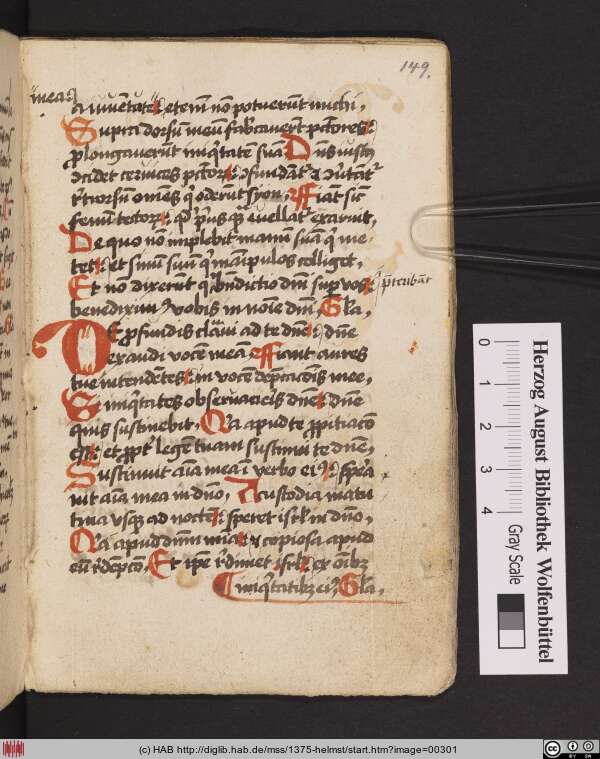 149.
mea
a iuventute: etenim nō potuerūt michi,
Supra dorsū meū fabᵃcauerūt pctōres:
ꝓlongauerunt inīqᵗtatē suā Dn̄s iustꝯ
ꝯcidet ceruices pctōrꝝ: ꝯfundāt᷑ ⁊ ꝯūtāt᷑
rͭrorsū om̄es qͥ oderūt syon, ffiāt sic
fenū tectorꝝ: qd̓ pͥusqᵃ euellat᷑ exaruit,
De quo nō implebit manū suā qͥ me-
tet: et sinū suū qͥ manipulos colliget,
Et nō dixerūt qͥ p̄teribāt
bn̄dictio dn̄i suꝑ vos:
benedixim᷒ vobis in noīe dn̄i, Gla,
DE ꝓfundis clāui ad te dn̄e: dn̄e
exaudi vocē meā, ffiant aures
tue intendētes: in vocē dep̄cacōis mee,
Si inīqᵗtates obseruaueis dn̄e: dn̄e
quis sustinebit, Qᵃ apud te ꝓpitiacō
est: et ꝓpt᷑ legē tuam sustinui te dn̄e,
Sustinuit aīa mea ī verbo ei᷒: spera-
uit aīa mea in dn̄o, A custodia matu
tina vsqꝫ ad noctē: speret isrl̄ in dn̄o,
Qᵃ apud dn̄m mīa: ⁊ copiosa apud
eū rd̓empcō, Et ipē rd̓imet isrl̄: ex oībꝫ
inīqᵗtatibꝫ ei᷒, Gla,
0 1 2 3 4
Gray Scale
Herzog August Bibliothek Wolfenbüttel
(c) HAB http://diglib.hab.de/mss/1375-helmst/start.htm?image=00301
CC BY SA